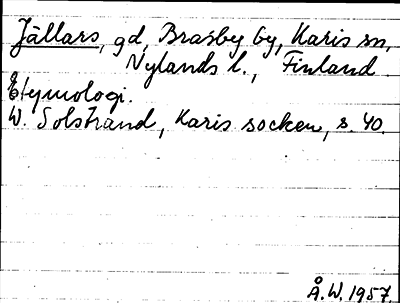 Jällars, gd, Brasby by, Karis sn,
Nylands l., Finland
Etymologi.
W. Solstrand, Karis socken, s. 40.
Å.W. 1957.